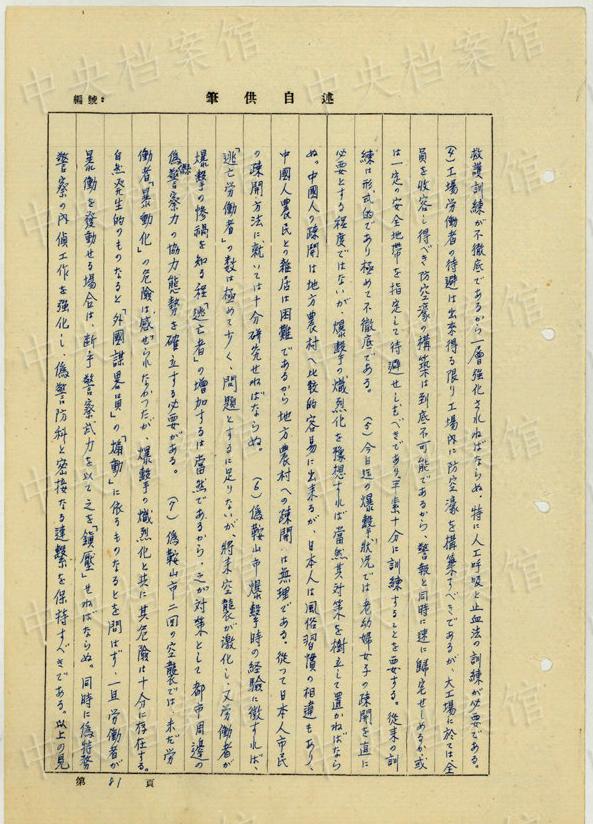 編號：
筆供自述
救護訓練が不徹底であるから一層強化されねばならぬ。特に人工呼吸と止血法の訓練が必要である。
(4)工場労働者の待避は出来得る限り工場内に防空濠を構築すべきであるが、大工場に於ては全
員を收容し得べき防空濠の構築は到底不可能であるから、警報と同時に速に歸宅せしめるか或
は一定の安全地帯を指定して待避せしむべきであり平素十分に訓練することを要する。従来の訓
練は形式的であり極めて不徹底である。 (5)今日迄の爆擊状况では老幼婦女子の疎開を直に
必要とする程度ではないが、爆擊の熾烈化を豫想すれば當然其対策を樹立して置かねばなら
ぬ。中國人の疎開は地方農村へ比較的容易に出来るが、日本人は風俗習慣の相違もあり、
中國人農民との雜居は困難であるから地方農村への疎開は無理である。従つて日本人市民
の疎開方法に就いては十分研究せねばならぬ。 (6)偽鞍山市爆擊時の経験に徴すれば、
「逃亡労働者」の数は極めて少く、問題とするに足りないが、将来空襲が激化し、又労働者が
爆擊の惨禍を知る程「逃亡者」の増加するは當然であるから、之が対策として都市周邊の
偽警察力の協力態勢を確立する必要がある。 (7)偽鞍山市二回の空襲では、未だ労
働者「暴動化」の危險は感ぜられなかつたが、爆擊の熾烈化と共に其危險は十分に存在する。
自然発生的のものなると「外國謀畧員」の「煽動」に依るものなるとを問はず、一旦労働者が
暴働を發動せる場合は、断乎警察武力を以て之を「鎮壓」せねばならぬ。同時に偽特務
警察の内偵工作を強化し、偽警防科と密接なる連繫を保持すべきである。以上の見
第 81 頁
中央档案馆